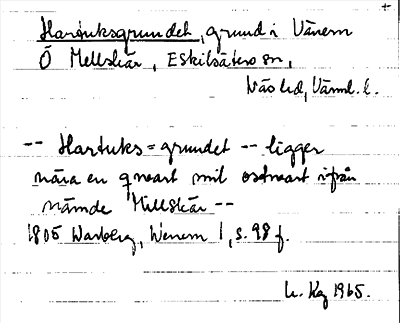 Hartuksgrundet, grund i Vänern
Ö Mellskär, Eskilsäters sn,
Näs hd, Värml. l.
-- Hartuks=grundet -- ligger
nära en qvart mil ostnart ifrån
nämde Millskär --
1805 Warberg, Wenern 1, s. 98 f.
1965.